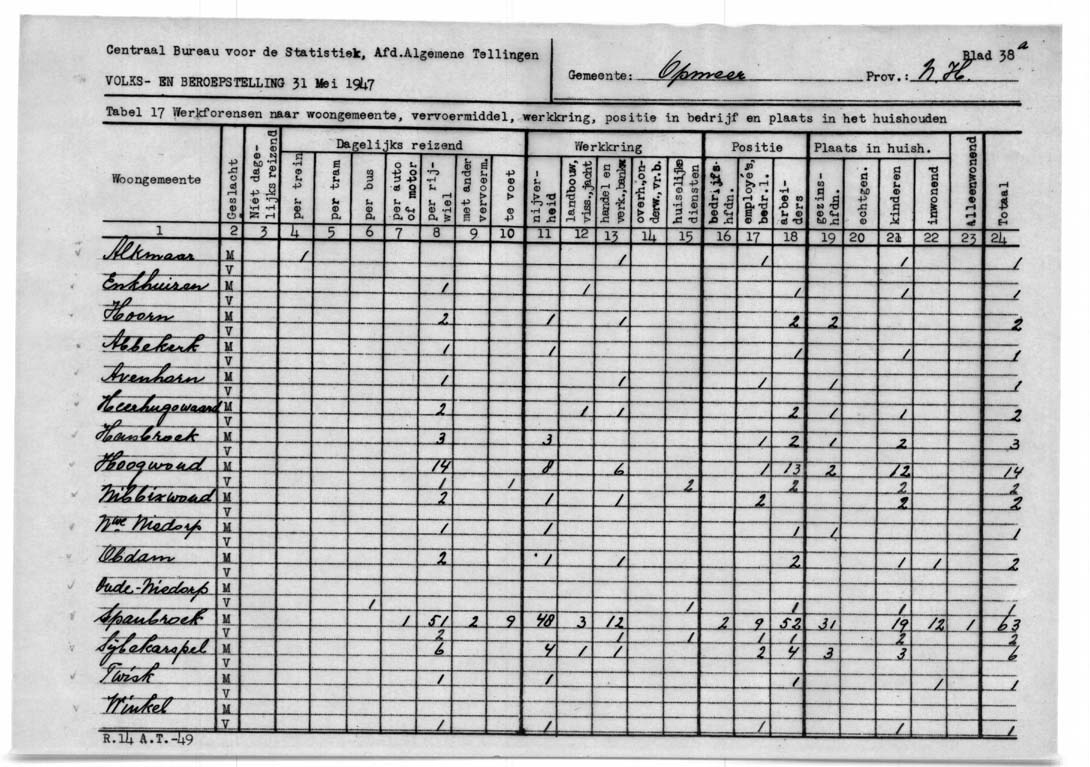 Centraal Bureau voor de Statistiek, Afd.Algemene Tellingen
Blad 38a
VOLKS- EN BEROEPSTELLING 31 Mei 1947
Gemeente: Opmeer Prov.: N.H.
Tabel 17 Werkforensen naar woongemeente, vervoermiddel, werkkring, positie in bedrijf en plaats in het huishouden
Dagelijks reizend Werkkring Positie Plaats in huish.
Woongemeente Geslacht Niet dage-lijks reizend per trein per tram per bus per auto of motor per rij-wiel met ander vervoerm. te voet nijver-heid landbouw, viss.,jacht handel en verk.,bankw overh.,on-derw.,vr.b. huiselijke diensten bedrijfs-hfdn. employé's, bedr.l. arbei-ders gezins-hfdn. echtgen. kinderen inwonend Alleenwonend Totaal
1 2 3 4 5 6 7 8 9 10 11 12 13 14 15 16 17 18 19 20 21 22 23 24
Alkmaar M 1 1 1 1 1
V
Enkhuizen M 1 1 1 1 1
V
Hoorn M 2 1 1 2 2 2
V
Abbekerk M 1 1 1 1 1
V
Avenhorn M 1 1 1 1 1
V
Heerhugowaard M 2 1 1 2 1 1 2
V
Hensbroek M 3 3 1 2 1 2 3
V
Hoogwoud M 14 8 6 1 13 2 12 14
V 1 1 2 2 2 2
Nibbixwoud M 2 1 1 2 2 2
V
Nwe Niedorp M 1 1 1 1 1
V
Obdam M 2 1 1 2 1 1 2
V
Oude-Niedorp M
V 1 1 1 1 1
Spanbroek M 1 51 2 9 48 3 12 2 9 52 31 19 12 1 63
V 2 1 1 1 1 2 2
Sijbekarspel M 6 4 1 1 2 4 3 3 6
V
Twisk M 1 1 1 1 1
V
Winkel M
V 1 1 1 1 1
R.14 A.T.-49